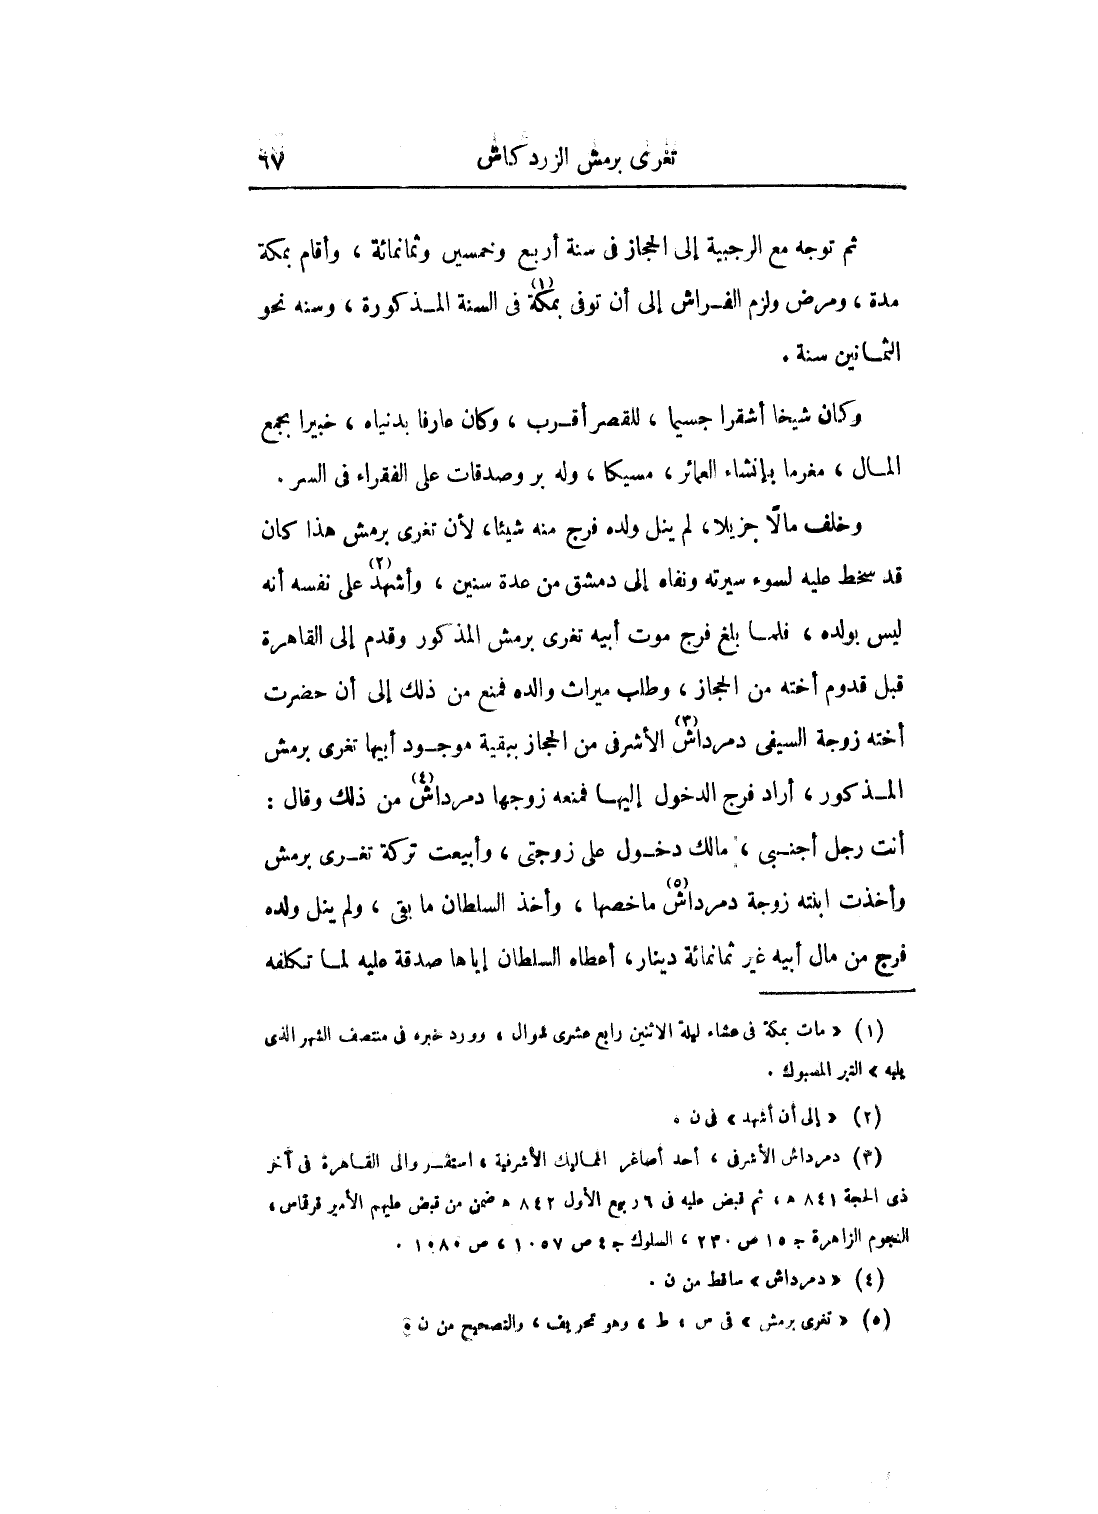 تغرى برمش الزردكاش ٦٧
ثم توجه مع الرجبية إلى الحجاز فى سنة أربع وخمسين وثمانمائة ، وأقام بمكة
مدة ، ومرض ولزم الفراش إلى أن توفى بمكة (١) فى السنة المذكورة ، وسنه نحو
الثمانين سنة .
وكان شيخا أشقرا جسيما ، للقصر أقرب ، وكان عارفا بدنياه ، خبيرا بجمع
المال ، مغرما بإنشاء العمائر ، مسيكا ، وله بر وصدقات على الفقراء فى السر .
وخلف مالًا جزيلا ، لم ينل ولده فرج منه شيئا ، لأن تغرى برمش هذا كان
قد سخط عليه لسوء سيرته ونفاه إلى دمشق من عدة سنين ، وأشهد (٢) على نفسه أنه
ليس بولده ، فلما بلغ فرج موت أبيه تغرى برمش المذكور وقدم إلى القاهرة
قبل قدوم أخته من الحجاز ، وطلب ميراث والده فمنع من ذلك إلى أن حضرت
أخته زوجة السيفى دمرداش (٣) الأشرفى من الحجاز ببقية موجود أبيها تغرى برمش
المذكور ، أراد فرج الدخول إليها فمنعه زوجها دمرداش (٤) من ذلك وقال :
أنت رجل أجنبى ، مالك دخول على زوجتى ، وأبيعت تركة تغرى برمش
وأخذت ابنته زوجة دمرداش (٥) ماخصها ، وأخذ السلطان ما بقى ، ولم ينل ولده
فرج من مال أبيه غير ثمانمائة دينار ، أعطاه السلطان إياها صدقة عليه لما تكلفه
(١) « مات بمكة فى عشاء ليلة الاثنين رابع عشرى شوال ، وورد خبره فى منتصف الشهر الذى
يليه » التبر المسبوك .
(٢) « إلى أن أشهد » فى ن .
(٣) دمرداش الأشرفى ، أحد أصاغر المماليك الأشرفية ، استقر والى القاهرة فى آخر
ذى الحجة ٨٤١ هـ ، ثم قبض عليه فى ٦ ربيع الأول ٨٤٢ هـ ضمن من قبض عليهم الأمير قرقماس ،
النجوم الزاهرة جـ ١٥ ص ٢٣٠ ، السلوك جـ ٤ ص ١٠٥٧ ، ص ١٠٨٠ .
(٤) « دمرداش » ساقط من ن .
(٥) « تغرى برمش » فى س ، ط ، وهو تحريف ، والتصحيح من ن .